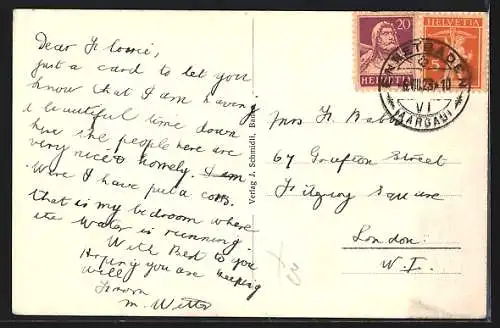 Dear Florrie,
just a card to let you
know that I am having
a beautiful time down
here the people here are
very nice & homely. I am
Were I have put a cross
that is my bedroom where
the water is running.
With Best to you
Hoping you are keeping
well
From
M. Witts
Verlag J. Schmidli,
20
HELVETIA
HELVETIA
5
ENNETBADEN
VI
(AARGAU)
Mrs F. Babbs
67 Grafton Street
Fitzroy Square
London.
W.I.